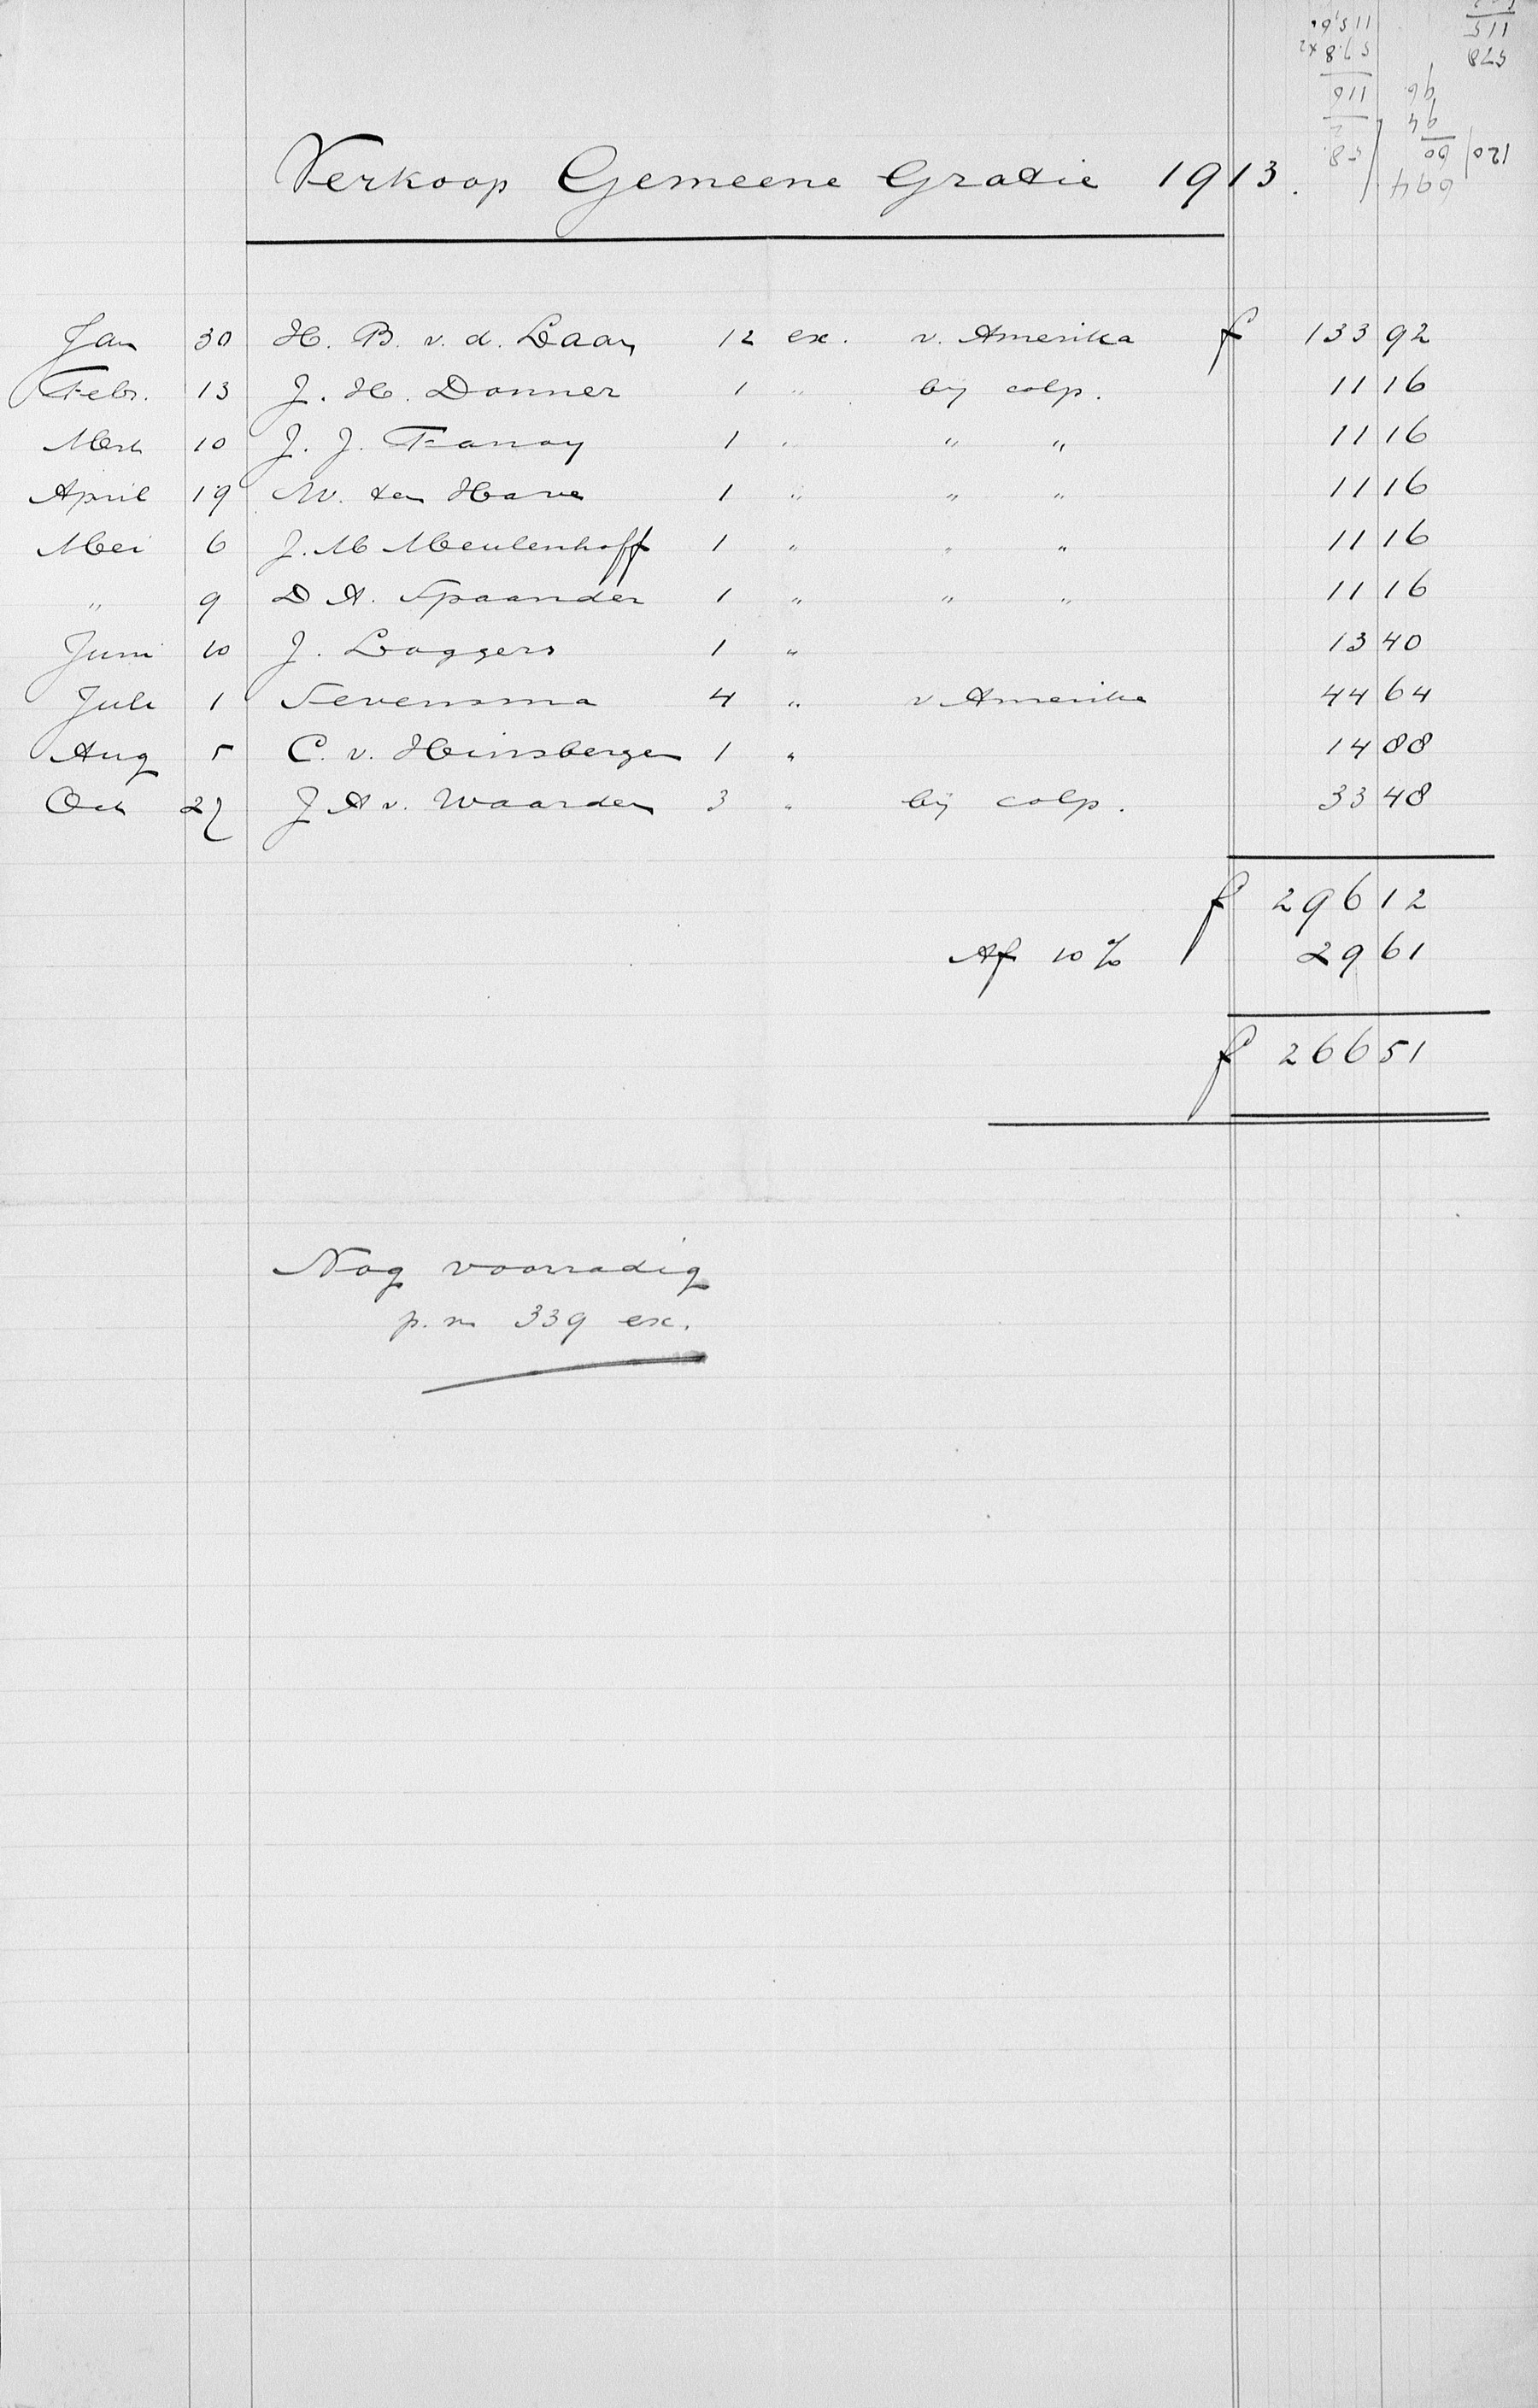 Verkoop Gemeene Gratie 1913.
Jan 30 H. B. v. d. Laan 12 ex. v. Amerika f 133 92
Febr. 13 J. H. Donner 1 " bij colp. 11 16
Mrt 10 J. J. Fanoy 1 " " " 11 16
April 19 W. ten Have 1 " " " 11 16
Mei 6 J. M Meulenhoff 1 " " " 11 16
" 9 D A. Spaander 1 " " " 11 16
Juni 10 J. Laggers 1 " 13 40
Juli 1 Sevensma 4 " v Amerika 44 64
Aug 5 C. v. Hinsbergen 1 " 14 88
Oct 27 J A v. Waarden 3 " bij colp. 33 48
f 296 12
Af 10 % 29 61
f 266 51
Nog voorradig
p. m 339 ex.
694
120 60 58
94 2
96 116
578 57.8 x2
115 115,6